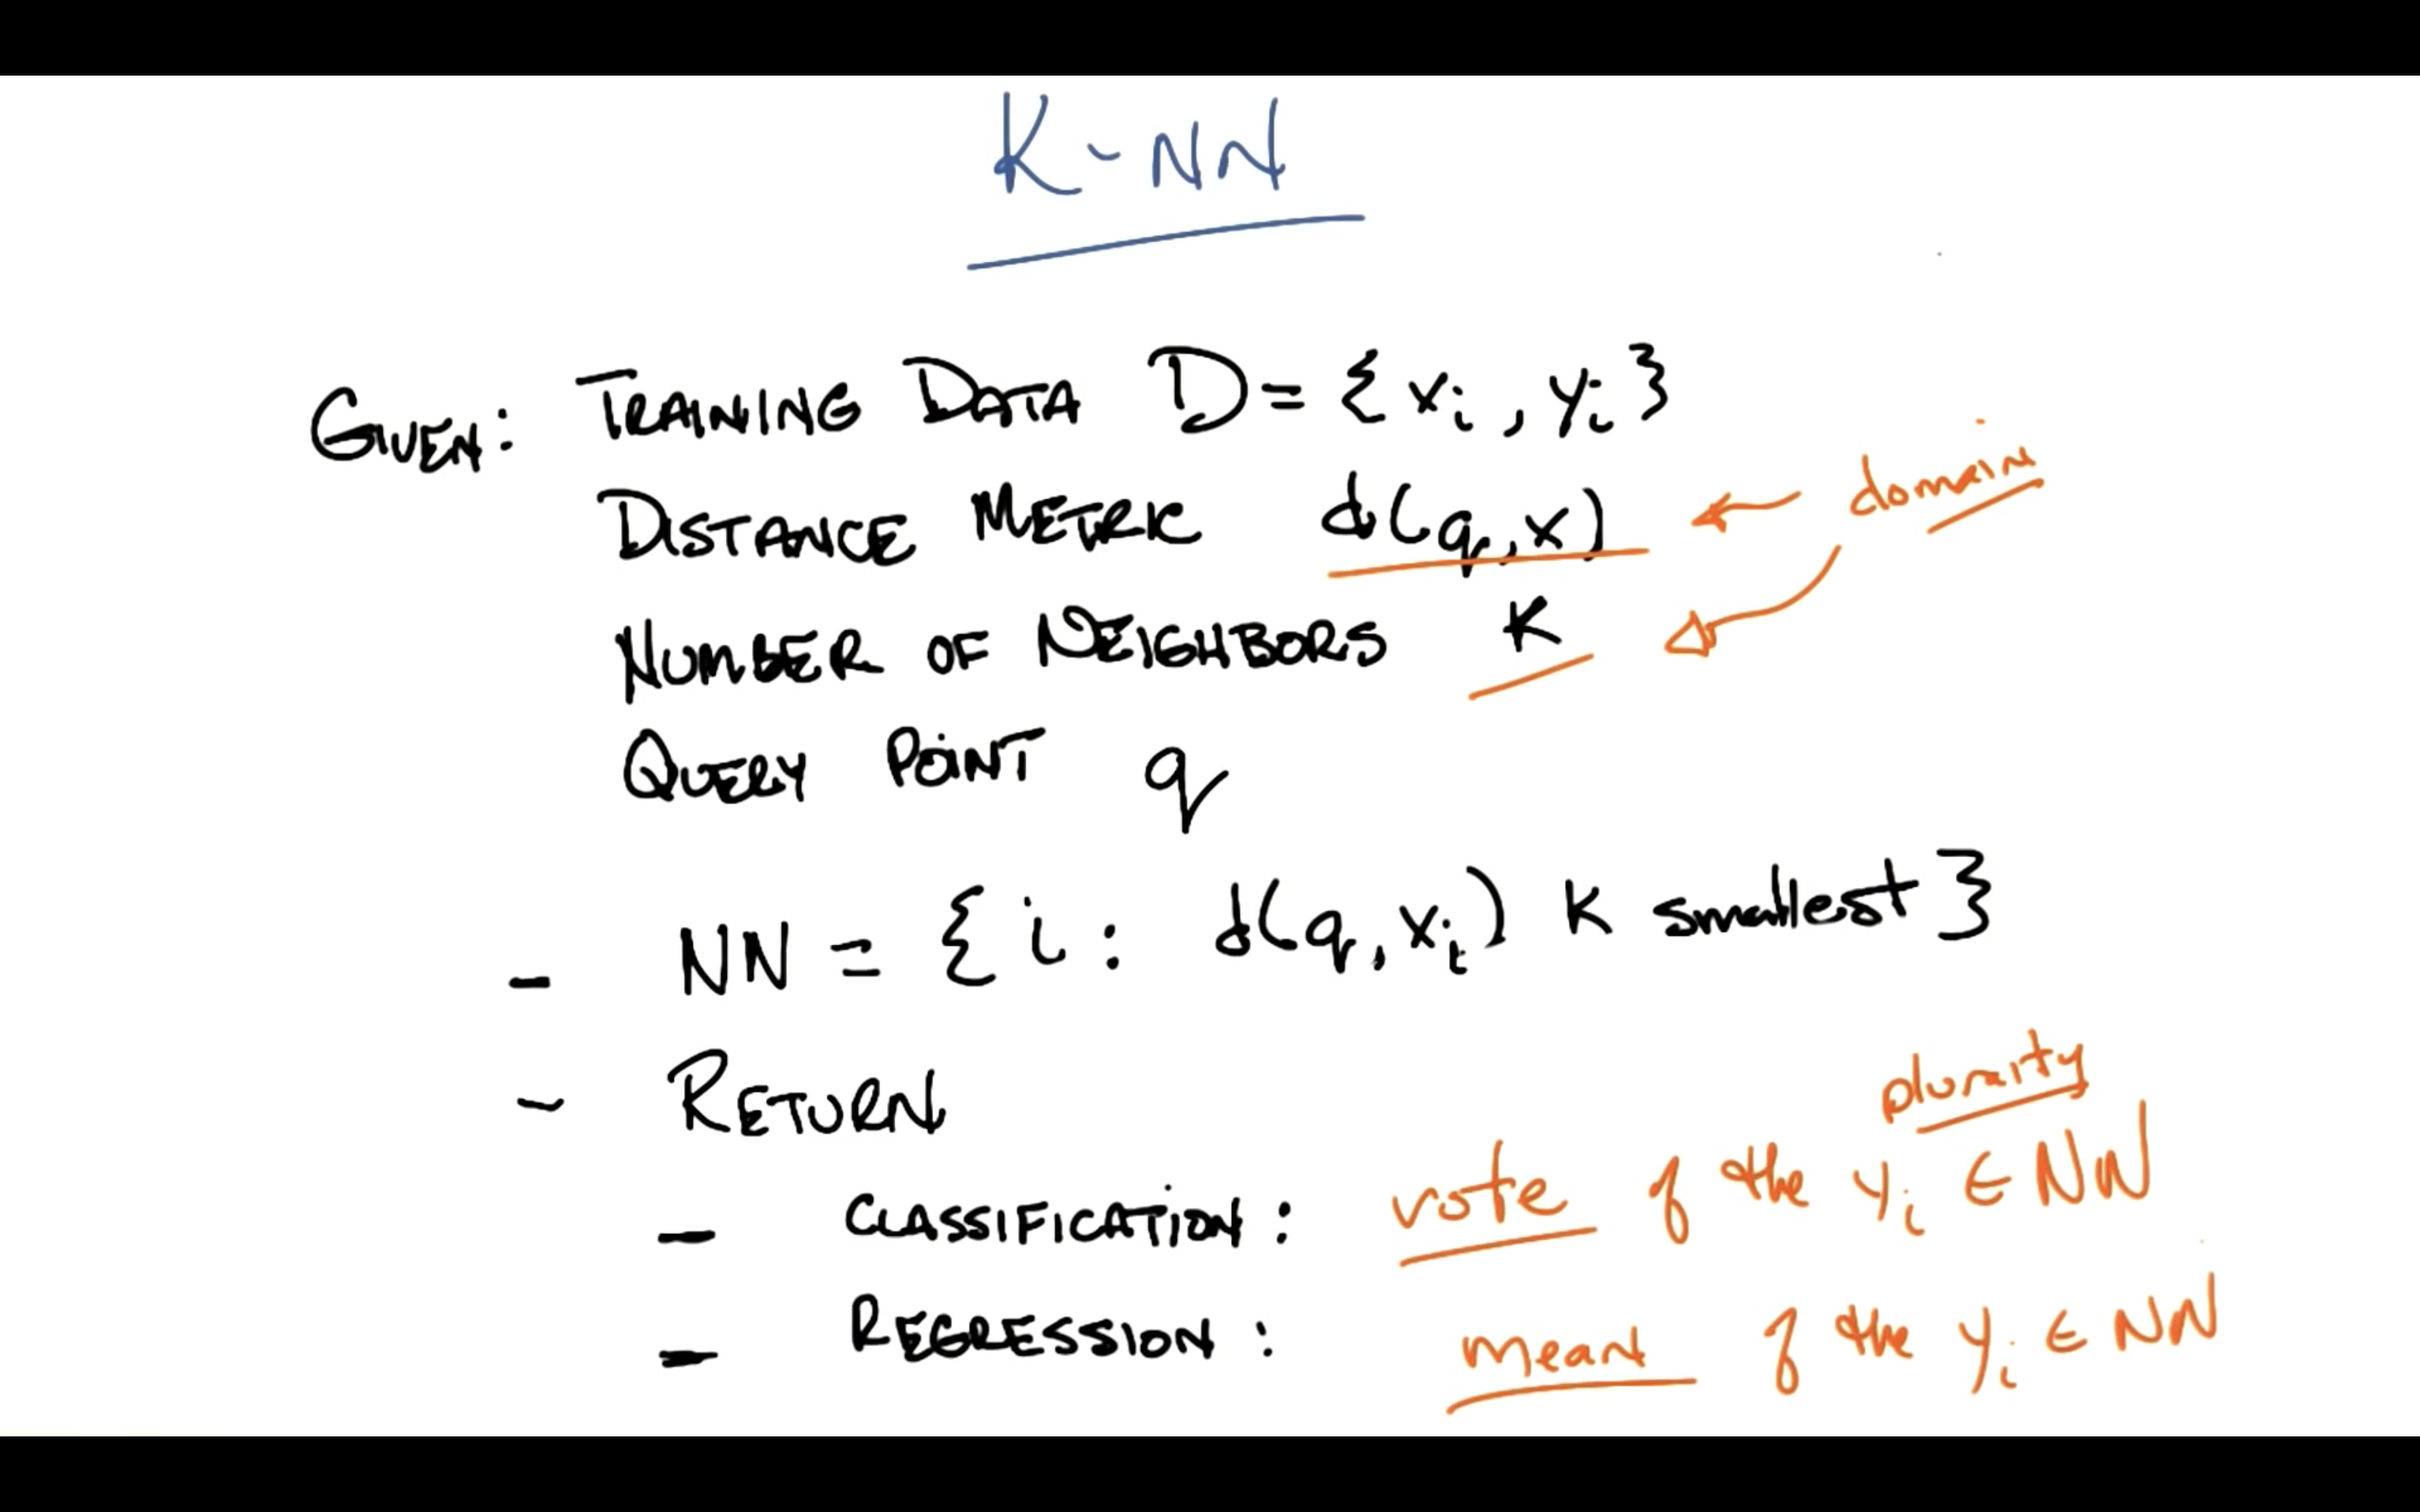 K-NN
GIVEN: TRAINING DATA D = { xi , yi }
DISTANCE METRIC d(q,x) ← domain
NUMBER OF NEIGHBORS K
QUERY POINT q
- NN = { i : d(q,xi) K smallest }
- RETURN
plurarity
- CLASSIFICATION : vote of the yi ∈ NN
- REGRESSION : mean of the yi ∈ NN